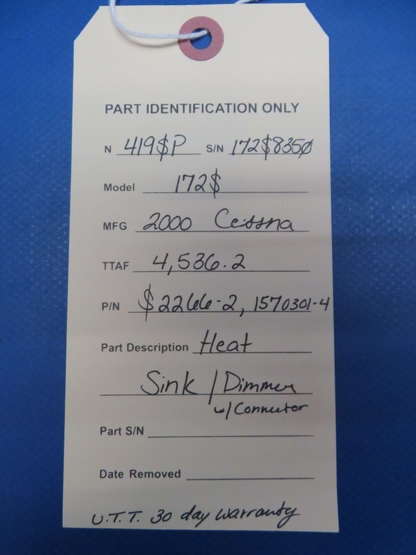 PART IDENTIFICATION ONLY
N 419$P S/N 172$8350
Model 172$
MFG 2000 Cessna
TTAF 4,536.2
P/N $2266-2, 1570301-4
Part Description Heat
Sink / Dimmer
w/ Connector
Part S/N
Date Removed
U.T.T. 30 day warranty